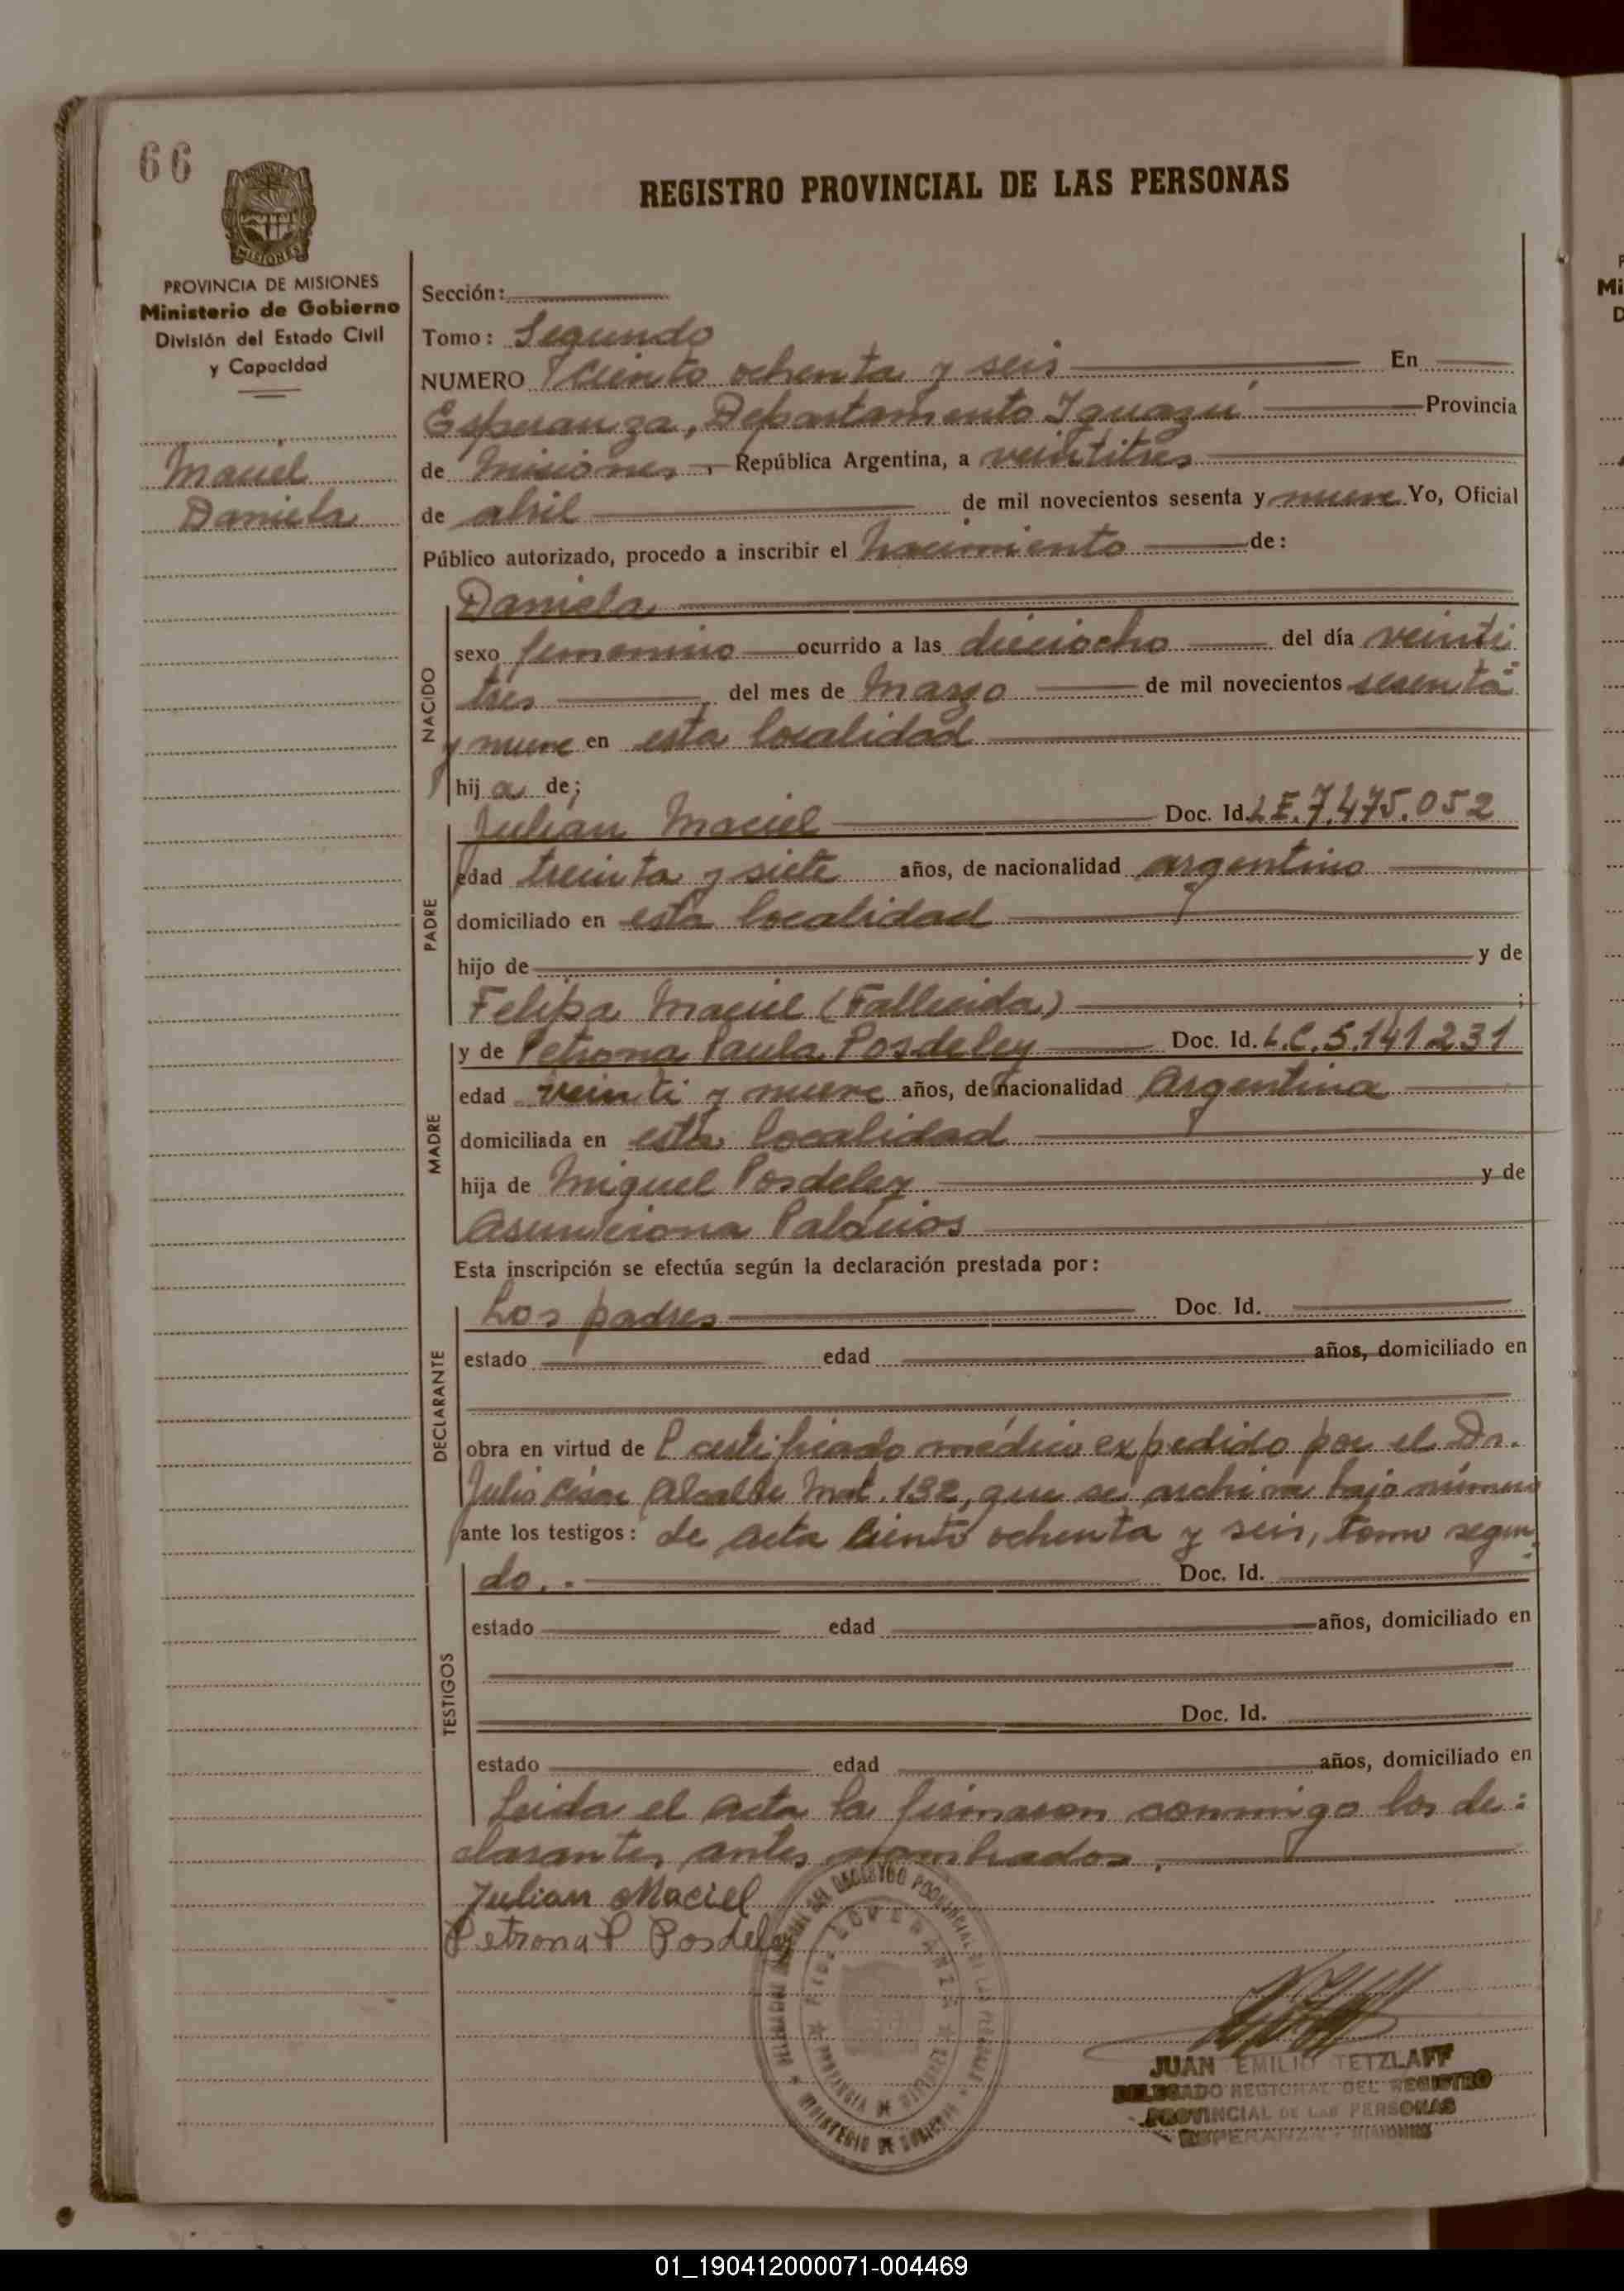 66
REGISTRO PROVINCIAL DE LAS PERSONAS
MISIONES
PROVINCIA DE MISIONES
Ministerio de Gobierno
División del Estado Civil
y Capacidad
Maciel
Daniela
Sección:
Tomo: Segundo
NUMERO ciento ochenta y seis En
Esperanza, Departamento Iguazú Provincia
de Misiones, República Argentina, a veintitres
de abril de mil novecientos sesenta y nueve Yo, Oficial
Público autorizado, procedo a inscribir el nacimiento de:
NACIDO
Daniela
sexo femenino ocurrido a las dieciocho del día veinti
tres del mes de Marzo de mil novecientos sesenta
y nueve en esta localidad
hij a de;
PADRE
Julian Maciel Doc. Id. L E. 7.475.052
edad treinta y siete años, de nacionalidad argentino
domiciliado en esta localidad
hijo de y de
Felipa Maciel (Fallecida) ;
MADRE
y de Petrona Paula Posdeley Doc. Id. L.C. 5.141.231
edad veinti y nueve años, de nacionalidad Argentina
domiciliada en esta localidad
hija de Miguel Posdeley y de
Asunciona Palacios
Esta inscripción se efectúa según la declaración prestada por:
DECLARANTE
Los padres Doc. Id.
estado edad años, domiciliado en
obra en virtud de l certificado médico expedido por el Dr.
Julio César Alcalde Mat. 132, que se archiva bajo número
ante los testigos: de acta ciento ochenta y seis, tomo segun
TESTIGOS
do.. Doc. Id.
estado edad años, domiciliado en
Doc. Id.
estado edad años, domiciliado en
Leida el acta la firmaron conmigo los de:
clarantes antes nombrados.
Julian Maciel
Petrona P Posdeley
PROVINCIA DE
MINISTERIO DE GOBIERNO
JUAN EMILIO TETZLAFF
DELEGADO REGIONAL DEL REGISTRO
PROVINCIAL DE LAS PERSONAS
ESPERANZA - MISIONES
01_190412000071-004469